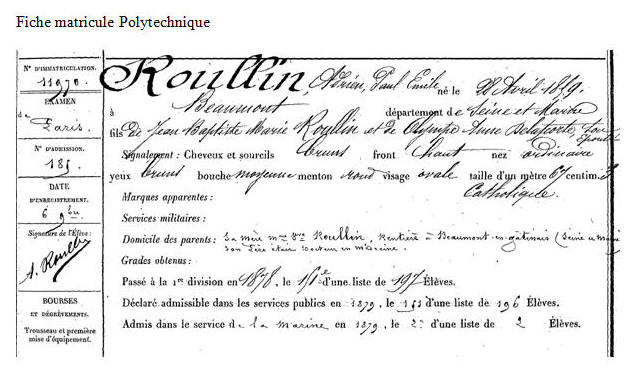 Fiche matricule Polytechnique
N° D'IMMATRICULATION.
11970
EXAMEN
de
Paris.
N° D'ADMISSION.
185
DATE
D'ENREGISTREMENT.
6 9bre
Signature de l'Élève:
A. Roullin
BOURSES
ET DÉGRÈVEMENTS.
Trousseau et première
mise d'équipement.
Roullin, Adrien, Paul Emile né le 28 Avril 1859.
à Beaumont département de Seine et Marne
fils de Jean Baptiste Marie Roullin et de Olympe Anne Delaporte, son épouse
Signalement : Cheveux et sourcils bruns front haut nez ordinaire
yeux bruns bouche moyenne menton rond visage ovale taille d'un mètre 67 centim.
Catholique.
Marques apparentes :
Services militaires :
Domicile des parents : Sa mère mme Vve Roullin, Rentière à Beaumont-en-gâtinais (Seine et Marne)
son Père était Docteur en Médecine.
Grades obtenus :
Passé à la 1re division en 1878, le d'une liste de 197 Élèves.
Déclaré admissible dans les services publics en 1879, le d'une liste de 196 Élèves.
Admis dans le service de la Marine en 1879, le 2e d'une liste de 2 Élèves.